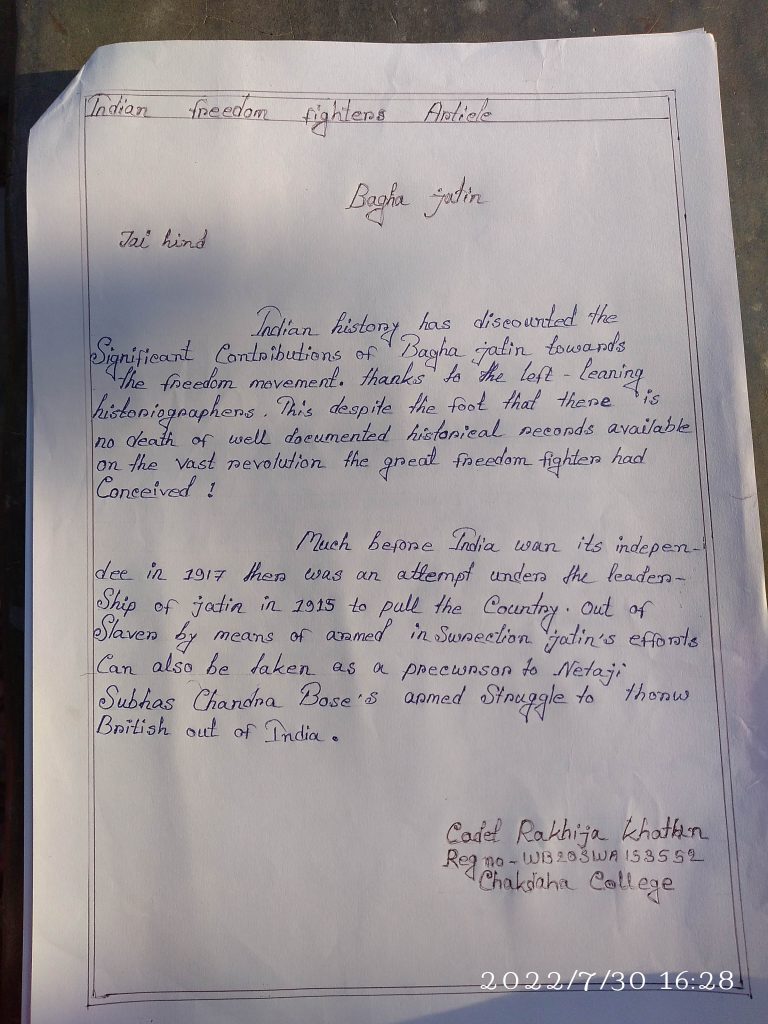 Indian freedom fighters Article
Bagha jatin
Jai hind
Indian history has discounted the
Significant Contributions of Bagha jatin towards
the freedom movement. thanks to the left - leaning
historiographers. This despite the foot that there is
no death of well documented historical records available
on the vast revolution the great freedom fighter had
Conceived !
Much before India wan its indepen-
dee in 1917 then was an attempt under the leader-
Ship of jatin in 1915 to pull the Country. Out of
Slaver by means of armed in Surection jatin's efforts
Can also be taken as a precursor to Netaji
Subhas Chandra Bose's armed Struggle to thorw
British out of India.
Cadet Rakhija Khatun
Reg no - WB20SWA153552
Chakdaha College
2022/7/30 16:28